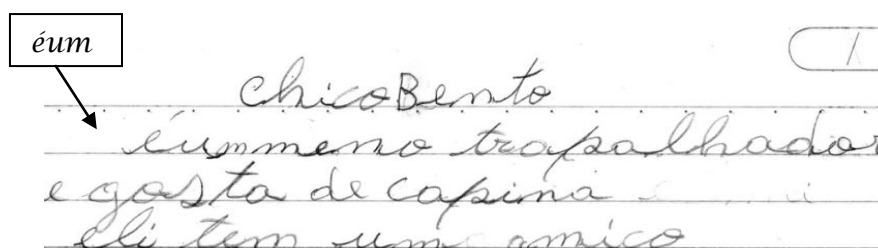 éum
1
ChicoBento
éummeno trapalhador
e gosta de capina
eli tem um amico